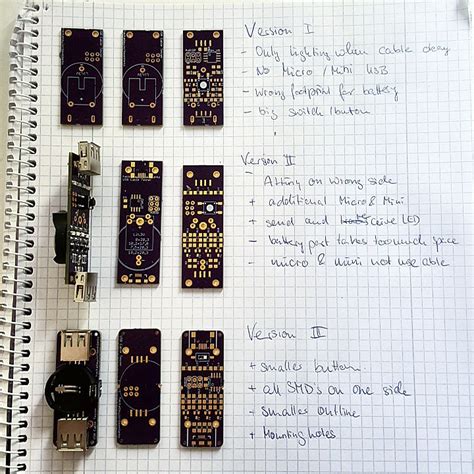 Version I
- Only lighting when cable okay
- No Micro / Mini USB
- wrong footprint for battery
- big switch/button
Version II
- Attiny on wrong side
+ additional Micro & Mini
+ send and ceive LED
- battery part takes too much space
- micro & mini not useable
Version III
+ smaller button
+ all SMD's on one side
+ smaller outline
+ Mounting holes